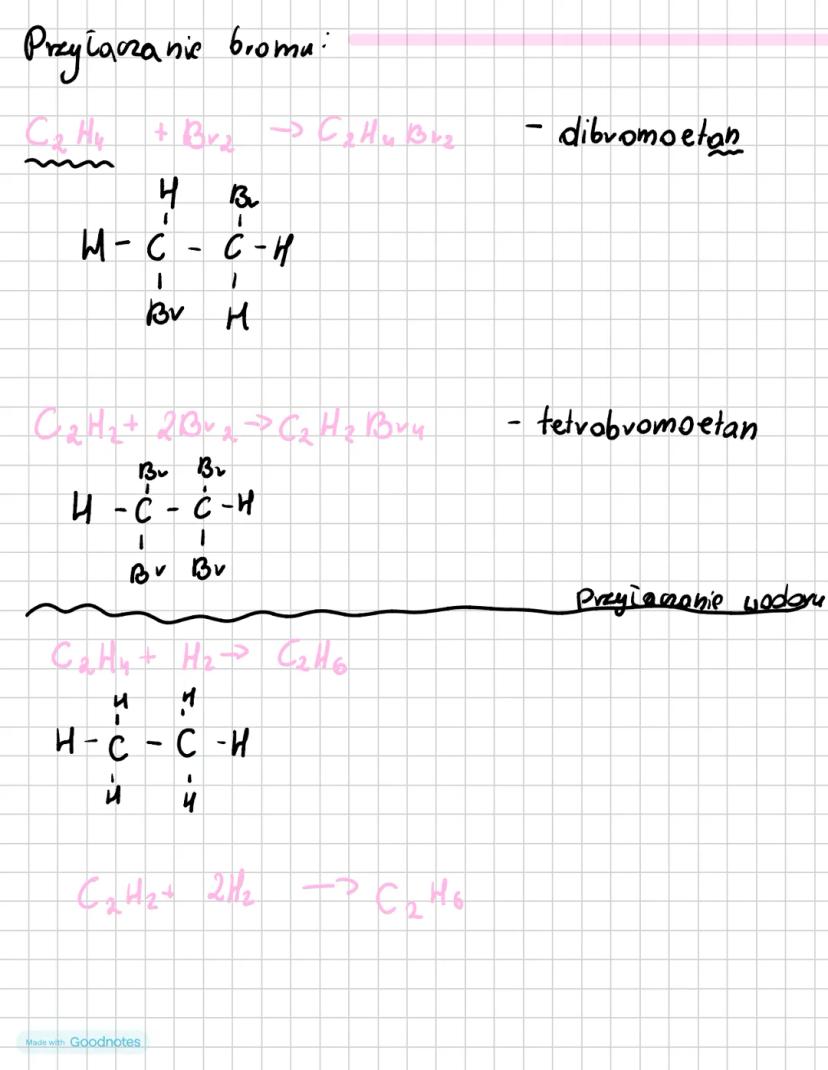 Przyłączanie bromu:
C2H4 + Br2 → C2H4Br2 - dibromoetan
H Br
H - C - C - H
Br H
C2H2 + 2Br2 → C2H2Br4 - tetrabromoetan
Br Br
H - C - C - H
Br Br
Przyłączanie wodoru
C2H4 + H2 → C2H6
H H
H - C - C - H
H H
C2H2 + 2H2 → C2H6
Made with Goodnotes